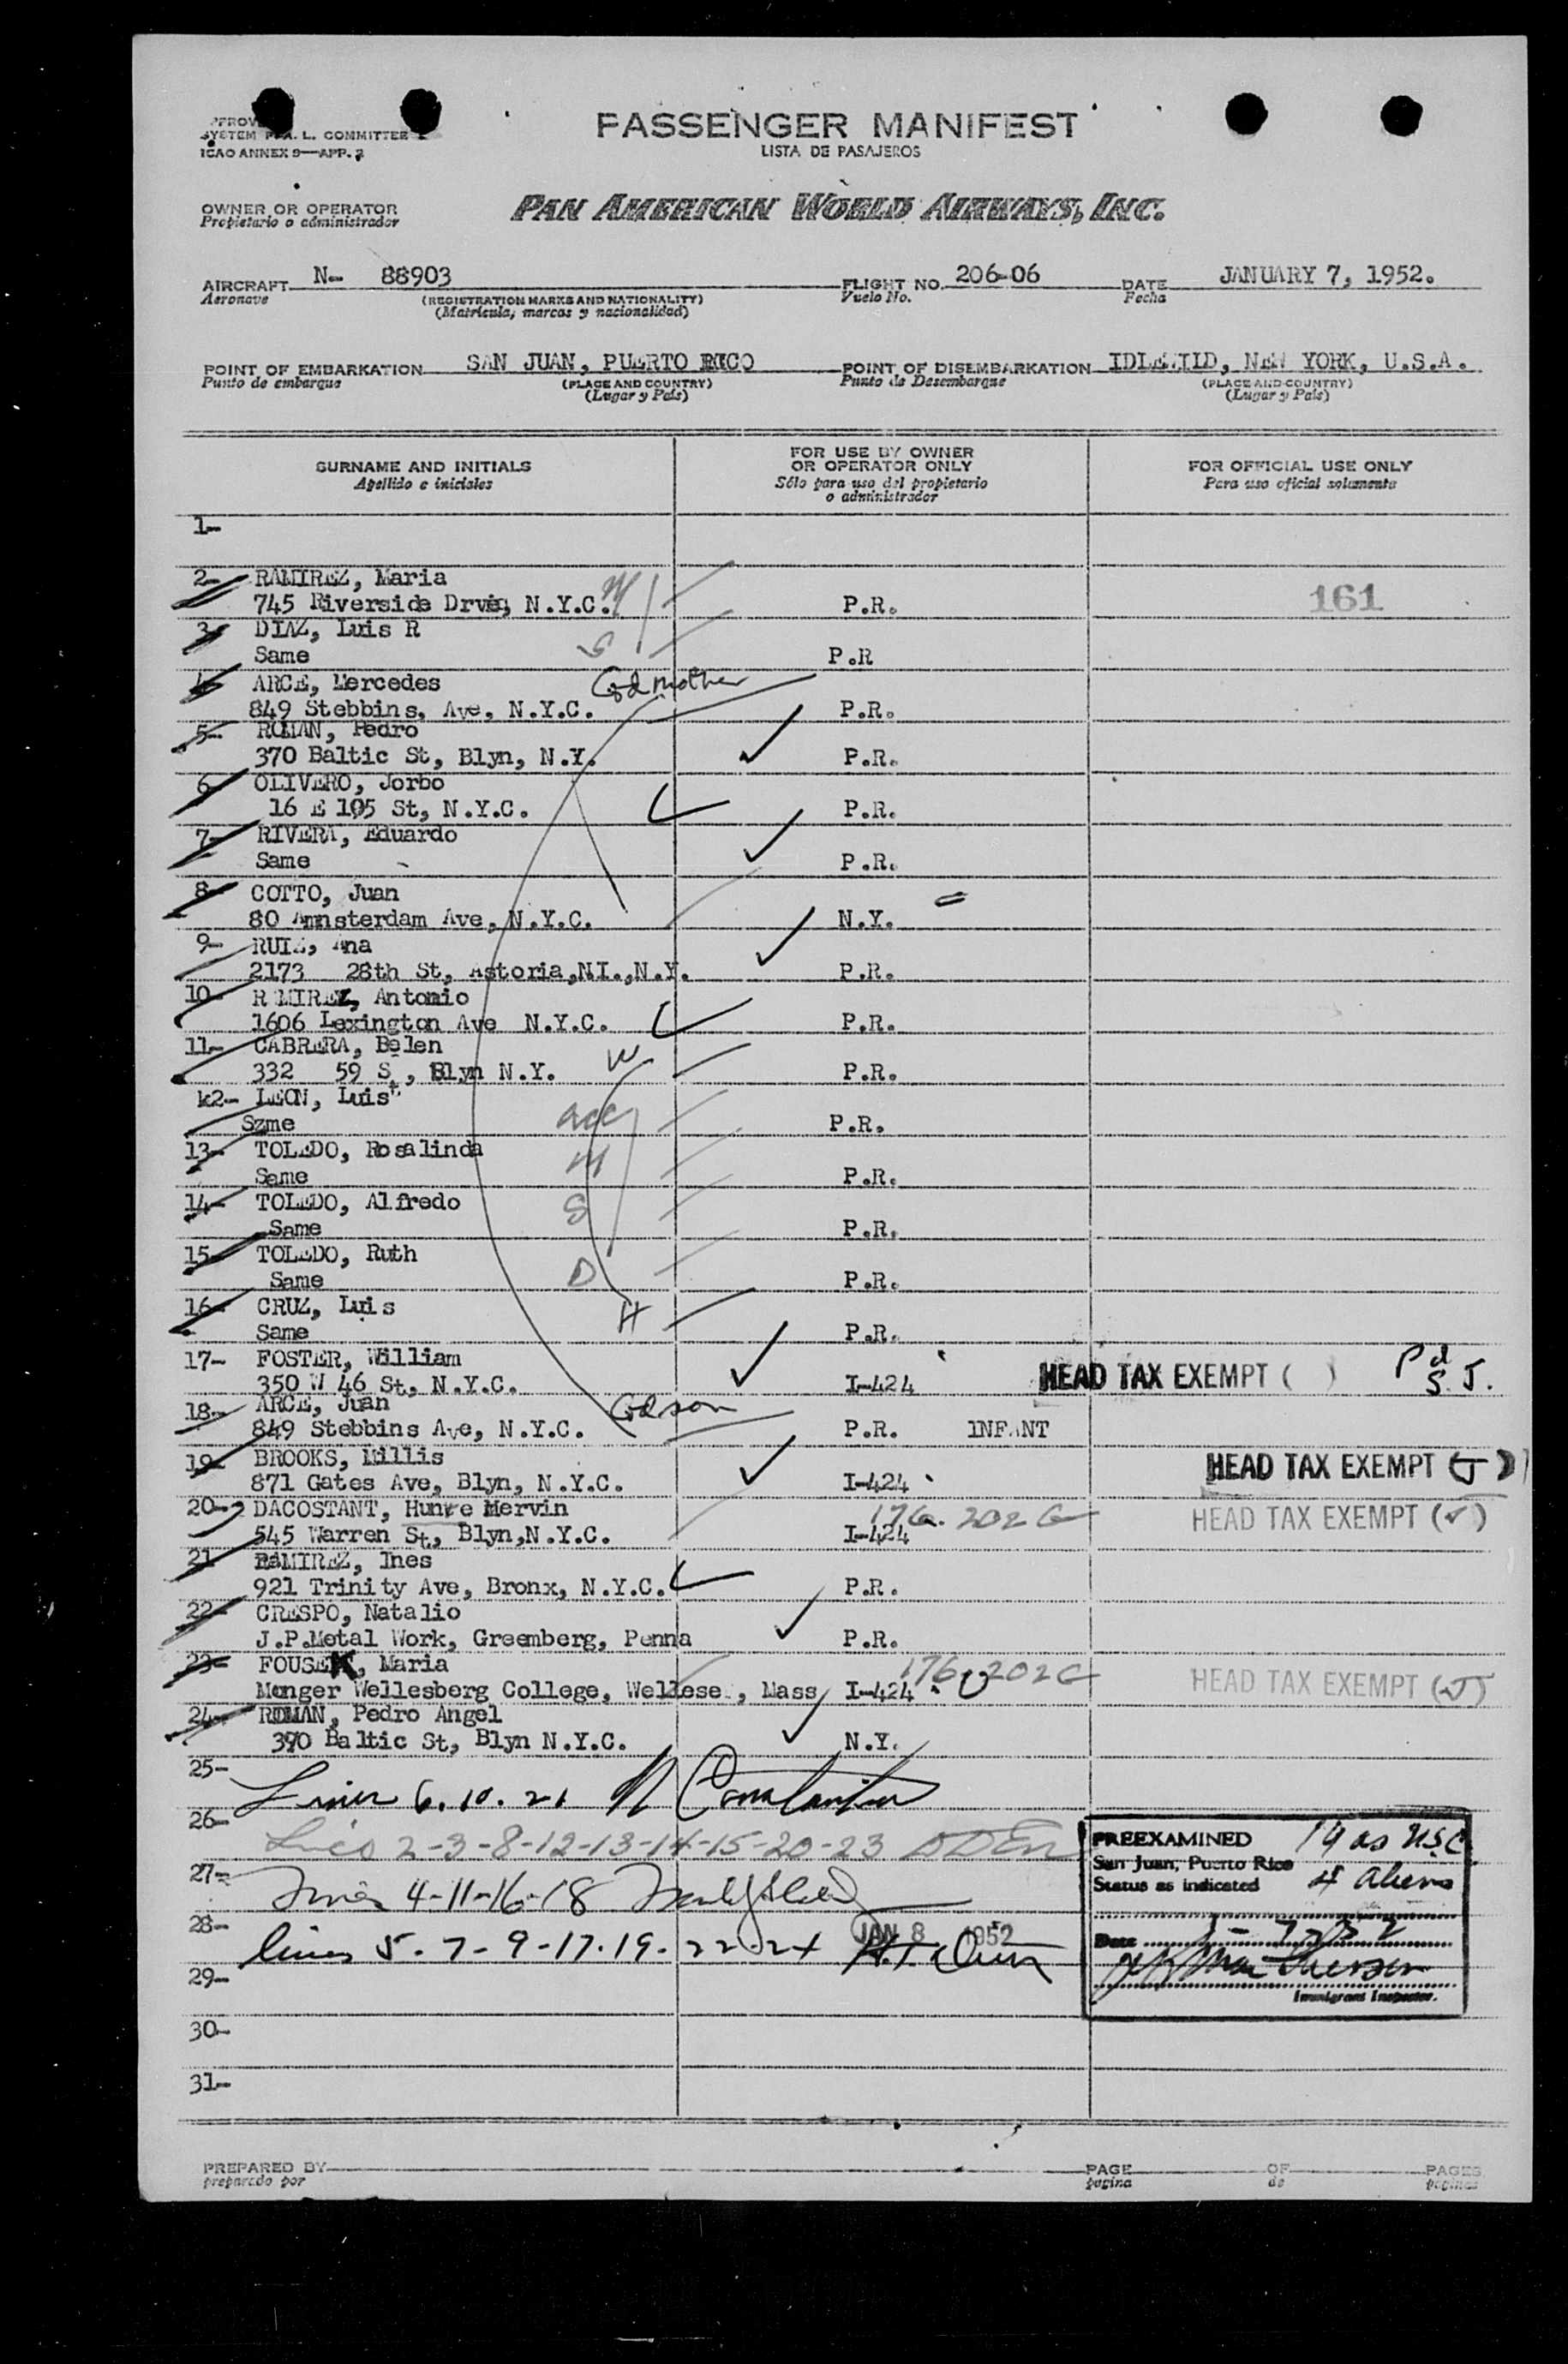 SYSTEM P.A.L. COMMITTEE
ICAO ANNEX 9—APP. 2
PASSENGER MANIFEST
LISTA DE PASAJEROS
OWNER OR OPERATOR
Propietario o administrador
PAN AMERICAN WORLD AIRWAYS, INC.
AIRCRAFT N- 88903 FLIGHT NO. 206-06 DATE JANUARY 7, 1952.
Aeronave (REGISTRATION MARKS AND NATIONALITY) Vuelo No. Fecha
(Matrícula, marcas y nacionalidad)
POINT OF EMBARKATION SAN JUAN, PUERTO RICO POINT OF DISEMBARKATION IDLEWILD, NEW YORK, U.S.A.
Punto de embarque (PLACE AND COUNTRY) Punto de Desembarque (PLACE AND COUNTRY)
(Lugar y País) (Lugar y País)
SURNAME AND INITIALS FOR USE BY OWNER OR OPERATOR ONLY FOR OFFICIAL USE ONLY
Apellido e iniciales Sólo para uso del propietario o administrador Para uso oficial solamente
1-
2- RAMIREZ, Maria M
745 Riverside Drve, N.Y.C. P.R. 161
3- DIAZ, Luis R
Same S P.R
4- ARCE, Mercedes Godmother
849 Stebbins, Ave, N.Y.C. P.R.
5- ROMAN, Pedro
370 Baltic St, Blyn, N.Y. P.R.
6- OLIVERO, Jorbo
16 E 105 St, N.Y.C. P.R.
7- RIVERA, Eduardo
Same P.R.
8- COTTO, Juan
80 Amnsterdam Ave, N.Y.C. N.Y.
9- RUIZ, Ana
2173 28th St, Astoria,N.I.,N.Y. P.R.
10- RAMIREZ, Antonio
1606 Lexington Ave N.Y.C. P.R.
11- CABRERA, Belen W
332 59 St, Blyn N.Y. P.R.
k2- LEON, Luis
Szme acc P.R.
13- TOLEDO, Rosalinda M
Same P.R.
14- TOLEDO, Alfredo S
Same P.R.
15- TOLEDO, Ruth
Same D P.R.
16- CRUZ, Luis H
Same P.R.
17- FOSTER, William
350 W 46 St, N.Y.C. I-424 HEAD TAX EXEMPT ( ) Pd S.J.
18- ARCE, Juan Godson
849 Stebbins Ave, N.Y.C. P.R. INFANT
19- BROOKS, Millis
871 Gates Ave, Blyn, N.Y.C. I-424 HEAD TAX EXEMPT (J)
20- DACOSTANT, Hunte Mervin 176-202G
545 Warren St, Blyn,N.Y.C. I-424 HEAD TAX EXEMPT (√)
21 RAMIREZ, Ines
921 Trinity Ave, Bronx, N.Y.C. P.R.
22- CRESPO, Natalio
J.P.Metal Work, Greemberg, Penna P.R.
23- FOUSEK, Maria 176-202G
Munger Wellesberg College, Wellese, Mass I-424 HEAD TAX EXEMPT (√)
24- ROMAN, Pedro Angel
390 Baltic St, Blyn N.Y.C. N.Y.
25- Lines 6.10.21
26- Lines 2-3-8-12-13-14-15-20-23
27- Lines 4-11-16-18
28- lines 5-7-9-17-19-22-24 JAN 8 1952
29-
30-
31-
PREEXAMINED 19 as U.S.C.
San Juan, Puerto Rico
Status as indicated 4 aliens
Date 1-7-52
Immigrant Inspector.
PREPARED BY PAGE OF PAGES
preparado por pagina de paginas